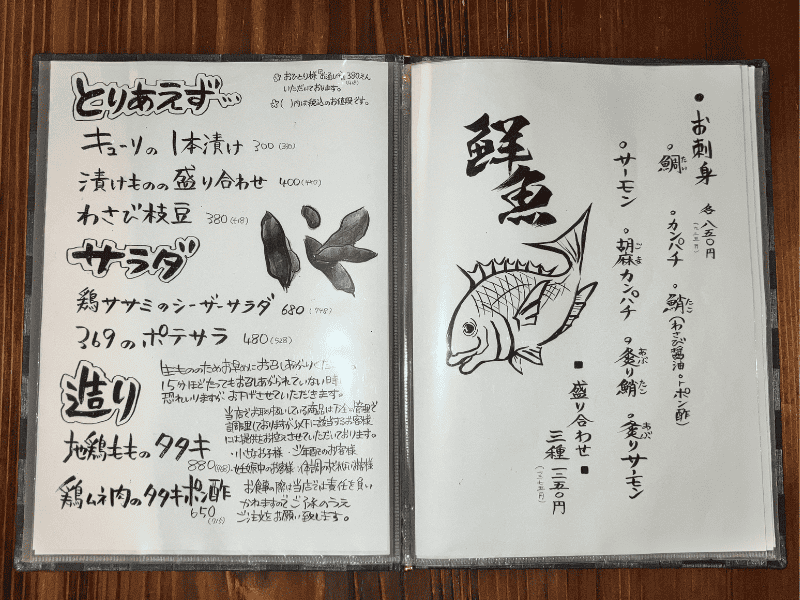 とりあえず…
☆おひとり様『お通し』380えん
いただいております。
☆( )内は税込のお値段です。
キューリの1本漬け 300(330)
漬けものの盛り合わせ 400(440)
わさび枝豆 380(418)
サラダ
鶏ササミのシーザーサラダ 680(748)
369のポテサラ 480(528)
造り
生もののためお早めにお召しあがりください。
15分ほどたってもお召しあがられていない時
恐れいりますが お下げさせていただきます。
当店でお取り扱いしている商品は万全の管理で
調理しておりますが以下に該当するお客様
には提供をお控えさせていただいております。
・小さなお子様 ・ご年配のお客様
・妊娠中のお客様 ・体調のすぐれないお客様
お食事の際は当店では責任を負い
かねますのでご了承のうえ
ご注文をお願い致します。
地鶏もものタタキ 880
鶏ムネ肉のタタキポン酢 650(715)
鮮魚
●お刺身 各八五〇円
(九三五円)
○鯛 たい
○カンパチ
○鮹 たこ (わさび醤油orポン酢)
○サーモン
○胡麻カンパチ ごま
○炙り鮹 あぶ たこ
○炙りサーモン あぶ
■盛り合わせ■
三種 一二五〇円
(一三七五円)